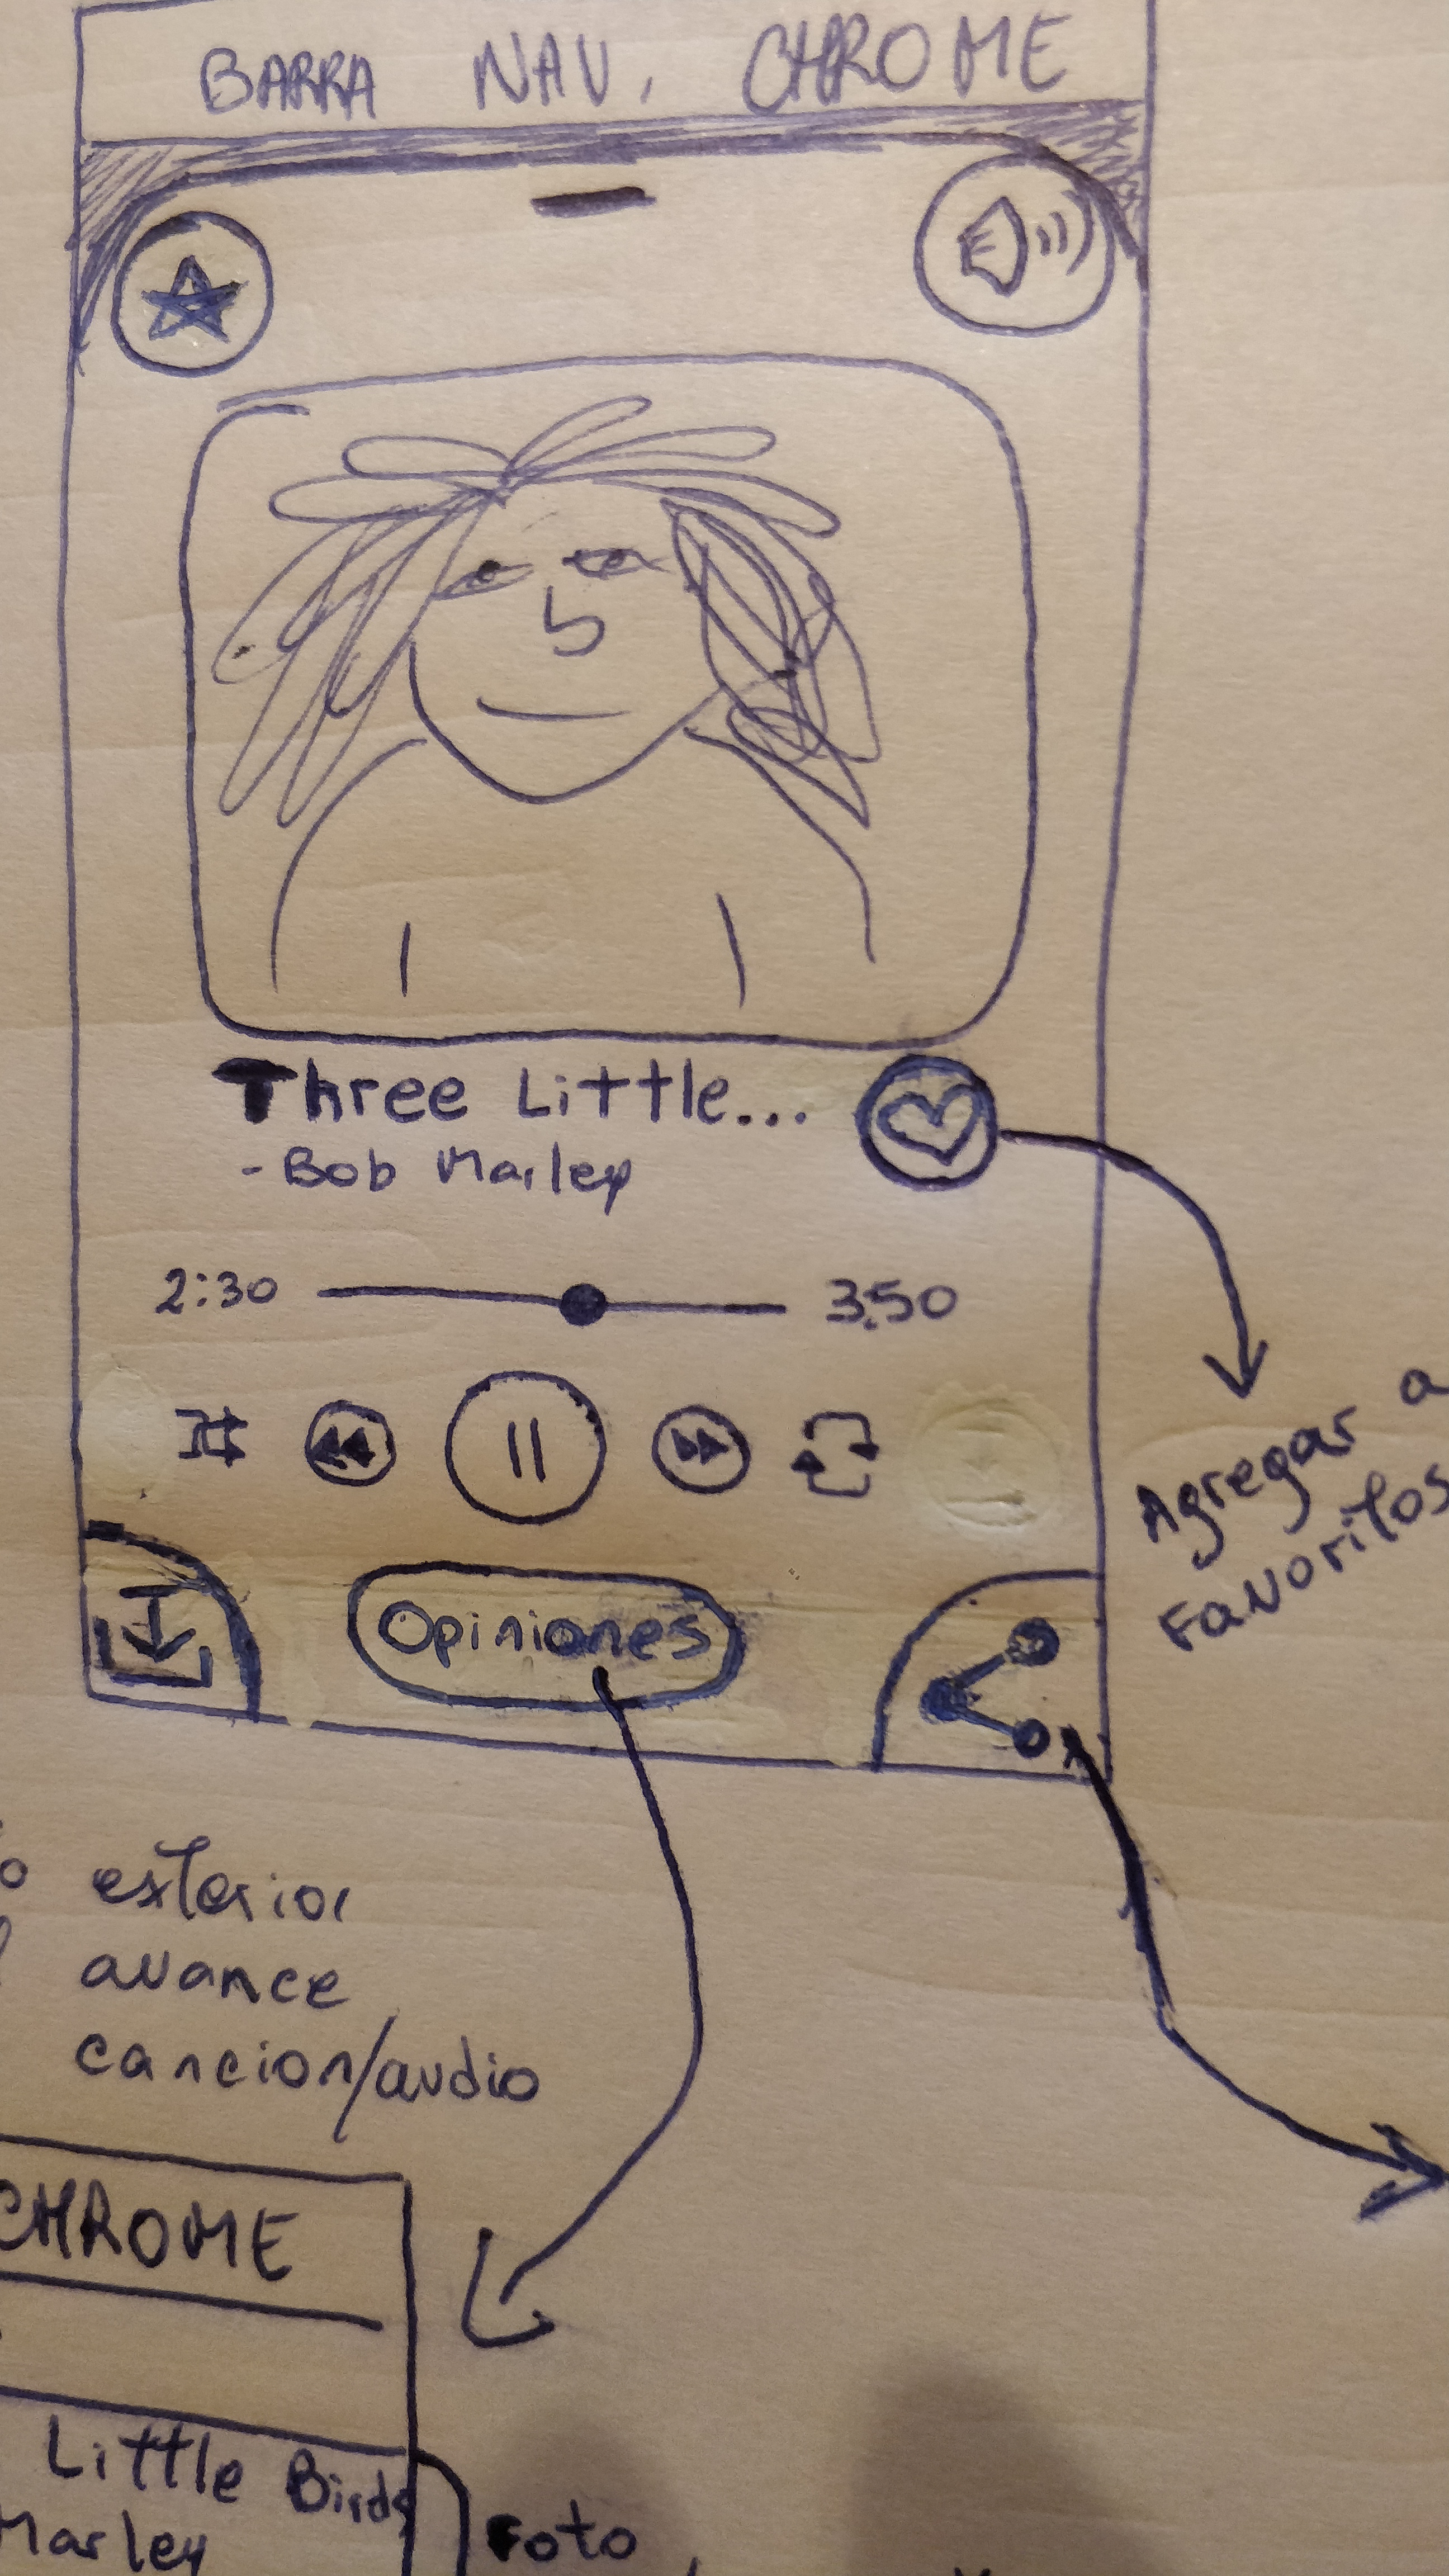 BARRA NAV. CHROME
Three Little...
- Bob Marley
2:30
3:50
Agregar a
Favoritos
Opiniones
exterior
avance
cancion/audio
CHROME
Little Birds
Marley
Foto